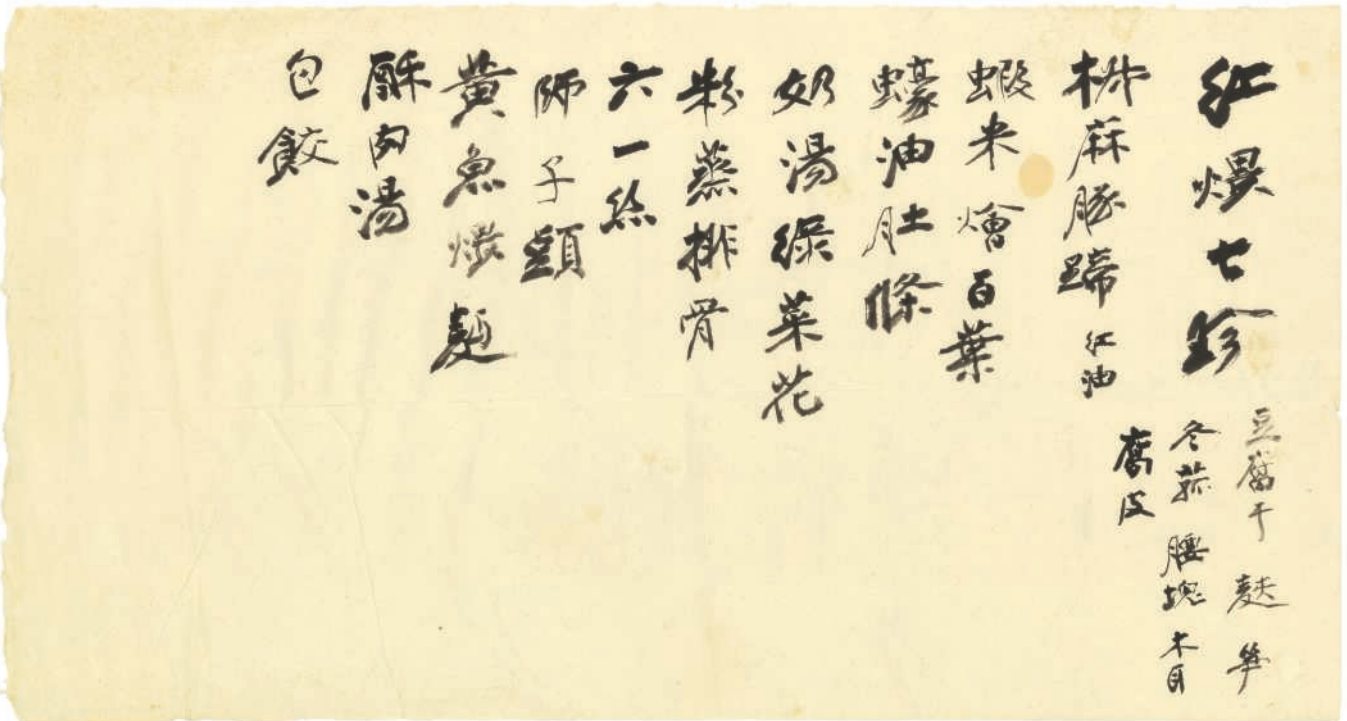 紅煨七珍
豆腐干 麩 笋
冬菰 腰塊 木耳
腐皮
椒麻豚蹄 紅油
蝦米燴百葉
蠔油肚條
奶湯綠菜花
粉蒸排骨
六一絲
師子頭
黃魚煨麵
酥肉湯
包餃